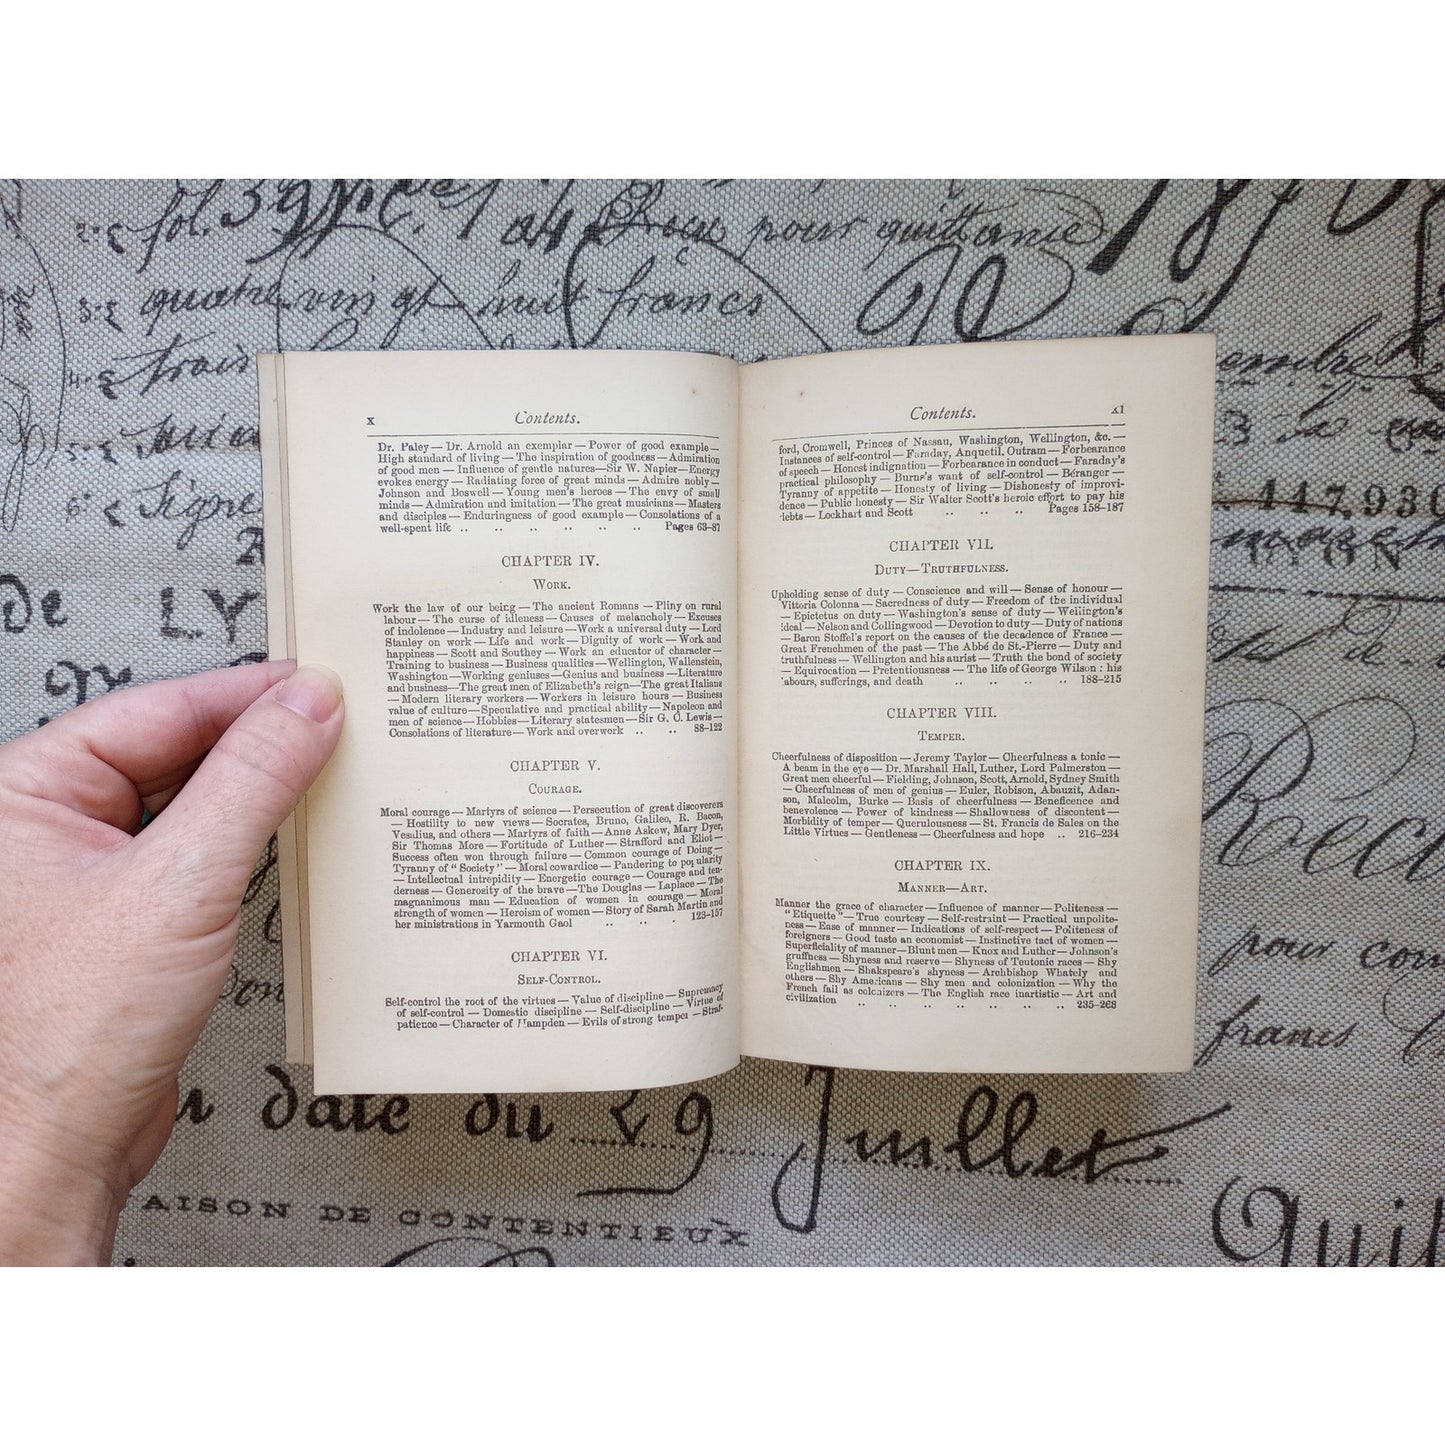 fol. 39
pour quittance
quatre vingt huit francs
x
Contents.
Dr. Paley — Dr. Arnold an exemplar — Power of good example —
High standard of living — The inspiration of goodness — Admiration
of good men — Influence of gentle natures — Sir W. Napier — Energy
evokes energy — Radiating force of great minds — Admire nobly —
Johnson and Boswell — Young men's heroes — The envy of small
minds — Admiration and imitation — The great musicians — Masters
and disciples — Enduringness of good example — Consolations of a
well-spent life .. .. .. .. .. .. Pages 63–87
CHAPTER IV.
WORK.
Work the law of our being — The ancient Romans — Pliny on rural
labour — The curse of idleness — Causes of melancholy — Excuses
of indolence — Industry and leisure — Work a universal duty — Lord
Stanley on work — Life and work — Dignity of work — Work and
happiness — Scott and Southey — Work an educator of character —
Training to business — Business qualities — Wellington, Wallenstein,
Washington — Working geniuses — Genius and business — Literature
and business — The great men of Elizabeth's reign — The great Italians
— Modern literary workers — Workers in leisure hours — Business
value of culture — Speculative and practical ability — Napoleon and
men of science — Hobbies — Literary statesmen — Sir G. C. Lewis —
Consolations of literature — Work and overwork .. .. 88–122
CHAPTER V.
COURAGE.
Moral courage — Martyrs of science — Persecution of great discoverers
— Hostility to new views — Socrates, Bruno, Galileo, R. Bacon,
Vesalius, and others — Martyrs of faith — Anne Askew, Mary Dyer,
Sir Thomas More — Fortitude of Luther — Strafford and Eliot —
Success often won through failure — Common courage of Doing —
Tyranny of "Society" — Moral cowardice — Pandering to popularity
— Intellectual intrepidity — Energetic courage — Courage and ten-
derness — Generosity of the brave — The Douglas — Laplace — The
magnanimous man — Education of women in courage — Moral
strength of women — Heroism of women — Story of Sarah Martin and
her ministrations in Yarmouth Gaol .. .. . 123–157
CHAPTER VI.
SELF-CONTROL.
Self-control the root of the virtues — Value of discipline — Supremacy
of self-control — Domestic discipline — Self-discipline — Virtue of
patience — Character of Hampden — Evils of strong temper — Straf-
Contents.
xi
ford, Cromwell, Princes of Nassau, Washington, Wellington, &c. —
Instances of self-control — Faraday, Anquetil, Outram — Forbearance
of speech — Honest indignation — Forbearance in conduct — Faraday's
practical philosophy — Burns's want of self-control — Béranger —
Tyranny of appetite — Honesty of living — Dishonesty of improvi-
dence — Public honesty — Sir Walter Scott's heroic effort to pay his
debts — Lockhart and Scott .. .. .. Pages 158–187
CHAPTER VII.
DUTY—TRUTHFULNESS.
Upholding sense of duty — Conscience and will — Sense of honour —
Vittoria Colonna — Sacredness of duty — Freedom of the individual
— Epictetus on duty — Washington's sense of duty — Wellington's
ideal — Nelson and Collingwood — Devotion to duty — Duty of nations
— Baron Stoffel's report on the causes of the decadence of France —
Great Frenchmen of the past — The Abbé de St.-Pierre — Duty and
truthfulness — Wellington and his aurist — Truth the bond of society
— Equivocation — Pretentiousness — The life of George Wilson : his
labours, sufferings, and death .. .. .. .. 188–215
CHAPTER VIII.
TEMPER.
Cheerfulness of disposition — Jeremy Taylor — Cheerfulness a tonic —
A beam in the eye — Dr. Marshall Hall, Luther, Lord Palmerston —
Great men cheerful — Fielding, Johnson, Scott, Arnold, Sydney Smith
— Cheerfulness of men of genius — Euler, Robison, Abauzit, Adan-
son, Malcolm, Burke — Basis of cheerfulness — Beneficence and
benevolence — Power of kindness — Shallowness of discontent —
Morbidity of temper — Querulousness — St. Francis de Sales on the
Little Virtues — Gentleness — Cheerfulness and hope .. 216–234
CHAPTER IX.
MANNER—ART.
Manner the grace of character — Influence of manner — Politeness —
"Etiquette" — True courtesy — Self-restraint — Practical unpolite-
ness — Ease of manner — Indications of self-respect — Politeness of
foreigners — Good taste an economist — Instinctive tact of women —
Superficiality of manner — Blunt men — Knox and Luther — Johnson's
gruffness — Shyness and reserve — Shyness of Teutonic races — Shy
Englishmen — Shakspeare's shyness — Archbishop Whately and
others — Shy Americans — Shy men and colonization — Why the
French fail as colonizers — The English race inartistic — Art and
civilization .. .. .. .. .. .. .. 235–268
de LY
pour
francs
date du 29 Juillet
AISON DE CONTENTIEUX